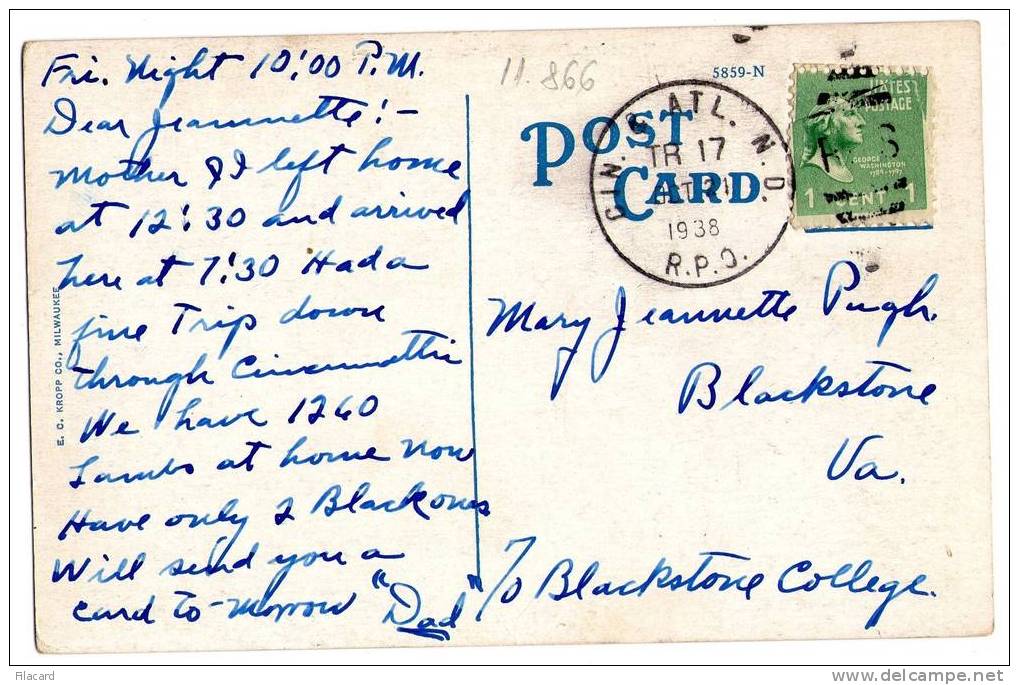 Fri. Night 10:00 P.M.
Dear Jeannette:-
Mother & I left home
at 12:30 and arrived
here at 7:30 Had a
fine Trip down
through Cincinnattie
We have 1260
Lambs at home now
Have only 2 Black ones
Will send you a
card to-morrow "Dad"
E. C. KROPP CO., MILWAUKEE
11.866
5859-N
POST
CARD
CIN. & ATL. N.D.
TR 17
OCT 21
1938
R.P.O.
POSTAGE
GEORGE
WASHINGTON
1789-1797
1 CENT 1
RMS
Mary Jeannette Pugh.
Blackstone
Va.
℅ Blackstone College.
Filacard
www.delcampe.net